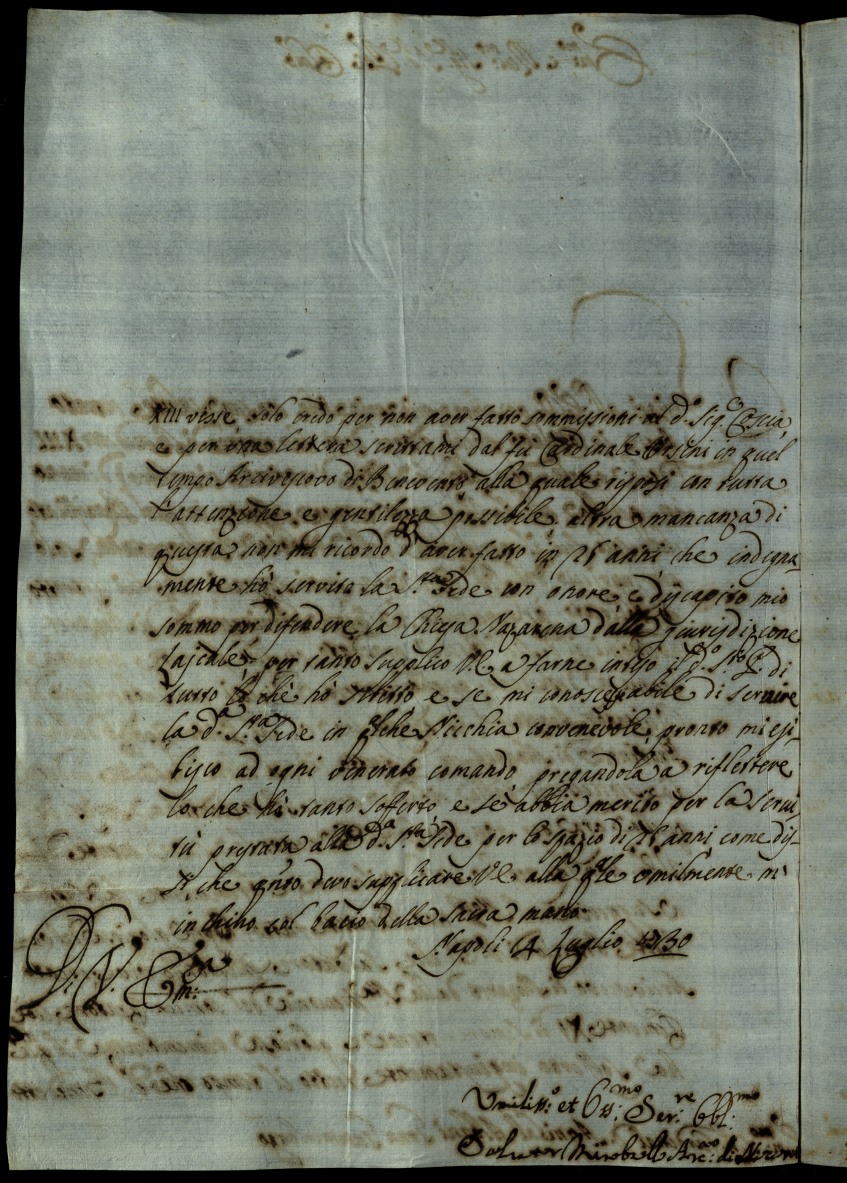 XIII visse, solo credo per non aver fatto sommissioni al d.º Sig.r Coscia,
e per una lettera scrittami dal fù Cardinale Orsini in quel
tempo Arcivescovo di Benevento alla quale risposi con tutta
l'attenzione e gentilezza possibile, altra mancanza di
questa non mi ricordo d'aver fatto in 26 anni che indegna-
mente hò servita la S.ta Sede con onore e discapito mio
sommo per difendere la Chiesa Nazarena dalla giurisdizione
laicale per tanto supplico V.E. a farne inteso il d.º S.to P. di
tutto ciò che hò scritto e se mi conosce abile di servire
la d.a S.ta Sede in qlche Nicchia convenevole, pronto mi esi-
bisco ad ogni venerato comando pregandola a riflettere
lo che hò tanto sofferto, e se abbia merito per la servi-
tù prestata alla d.a S.ta Sede per lo spazio di 26 anni come dis-
si, che è qnto devo supplicare V.E. alla qle umilmente m'
inchino col bacio della sacra mano.
Napoli 4 Luglio 1730
Di V. Em.za
Umiliss.º et Oss.mo Ser.re Obl.mo
Salvator Miroballo Arc.vo di